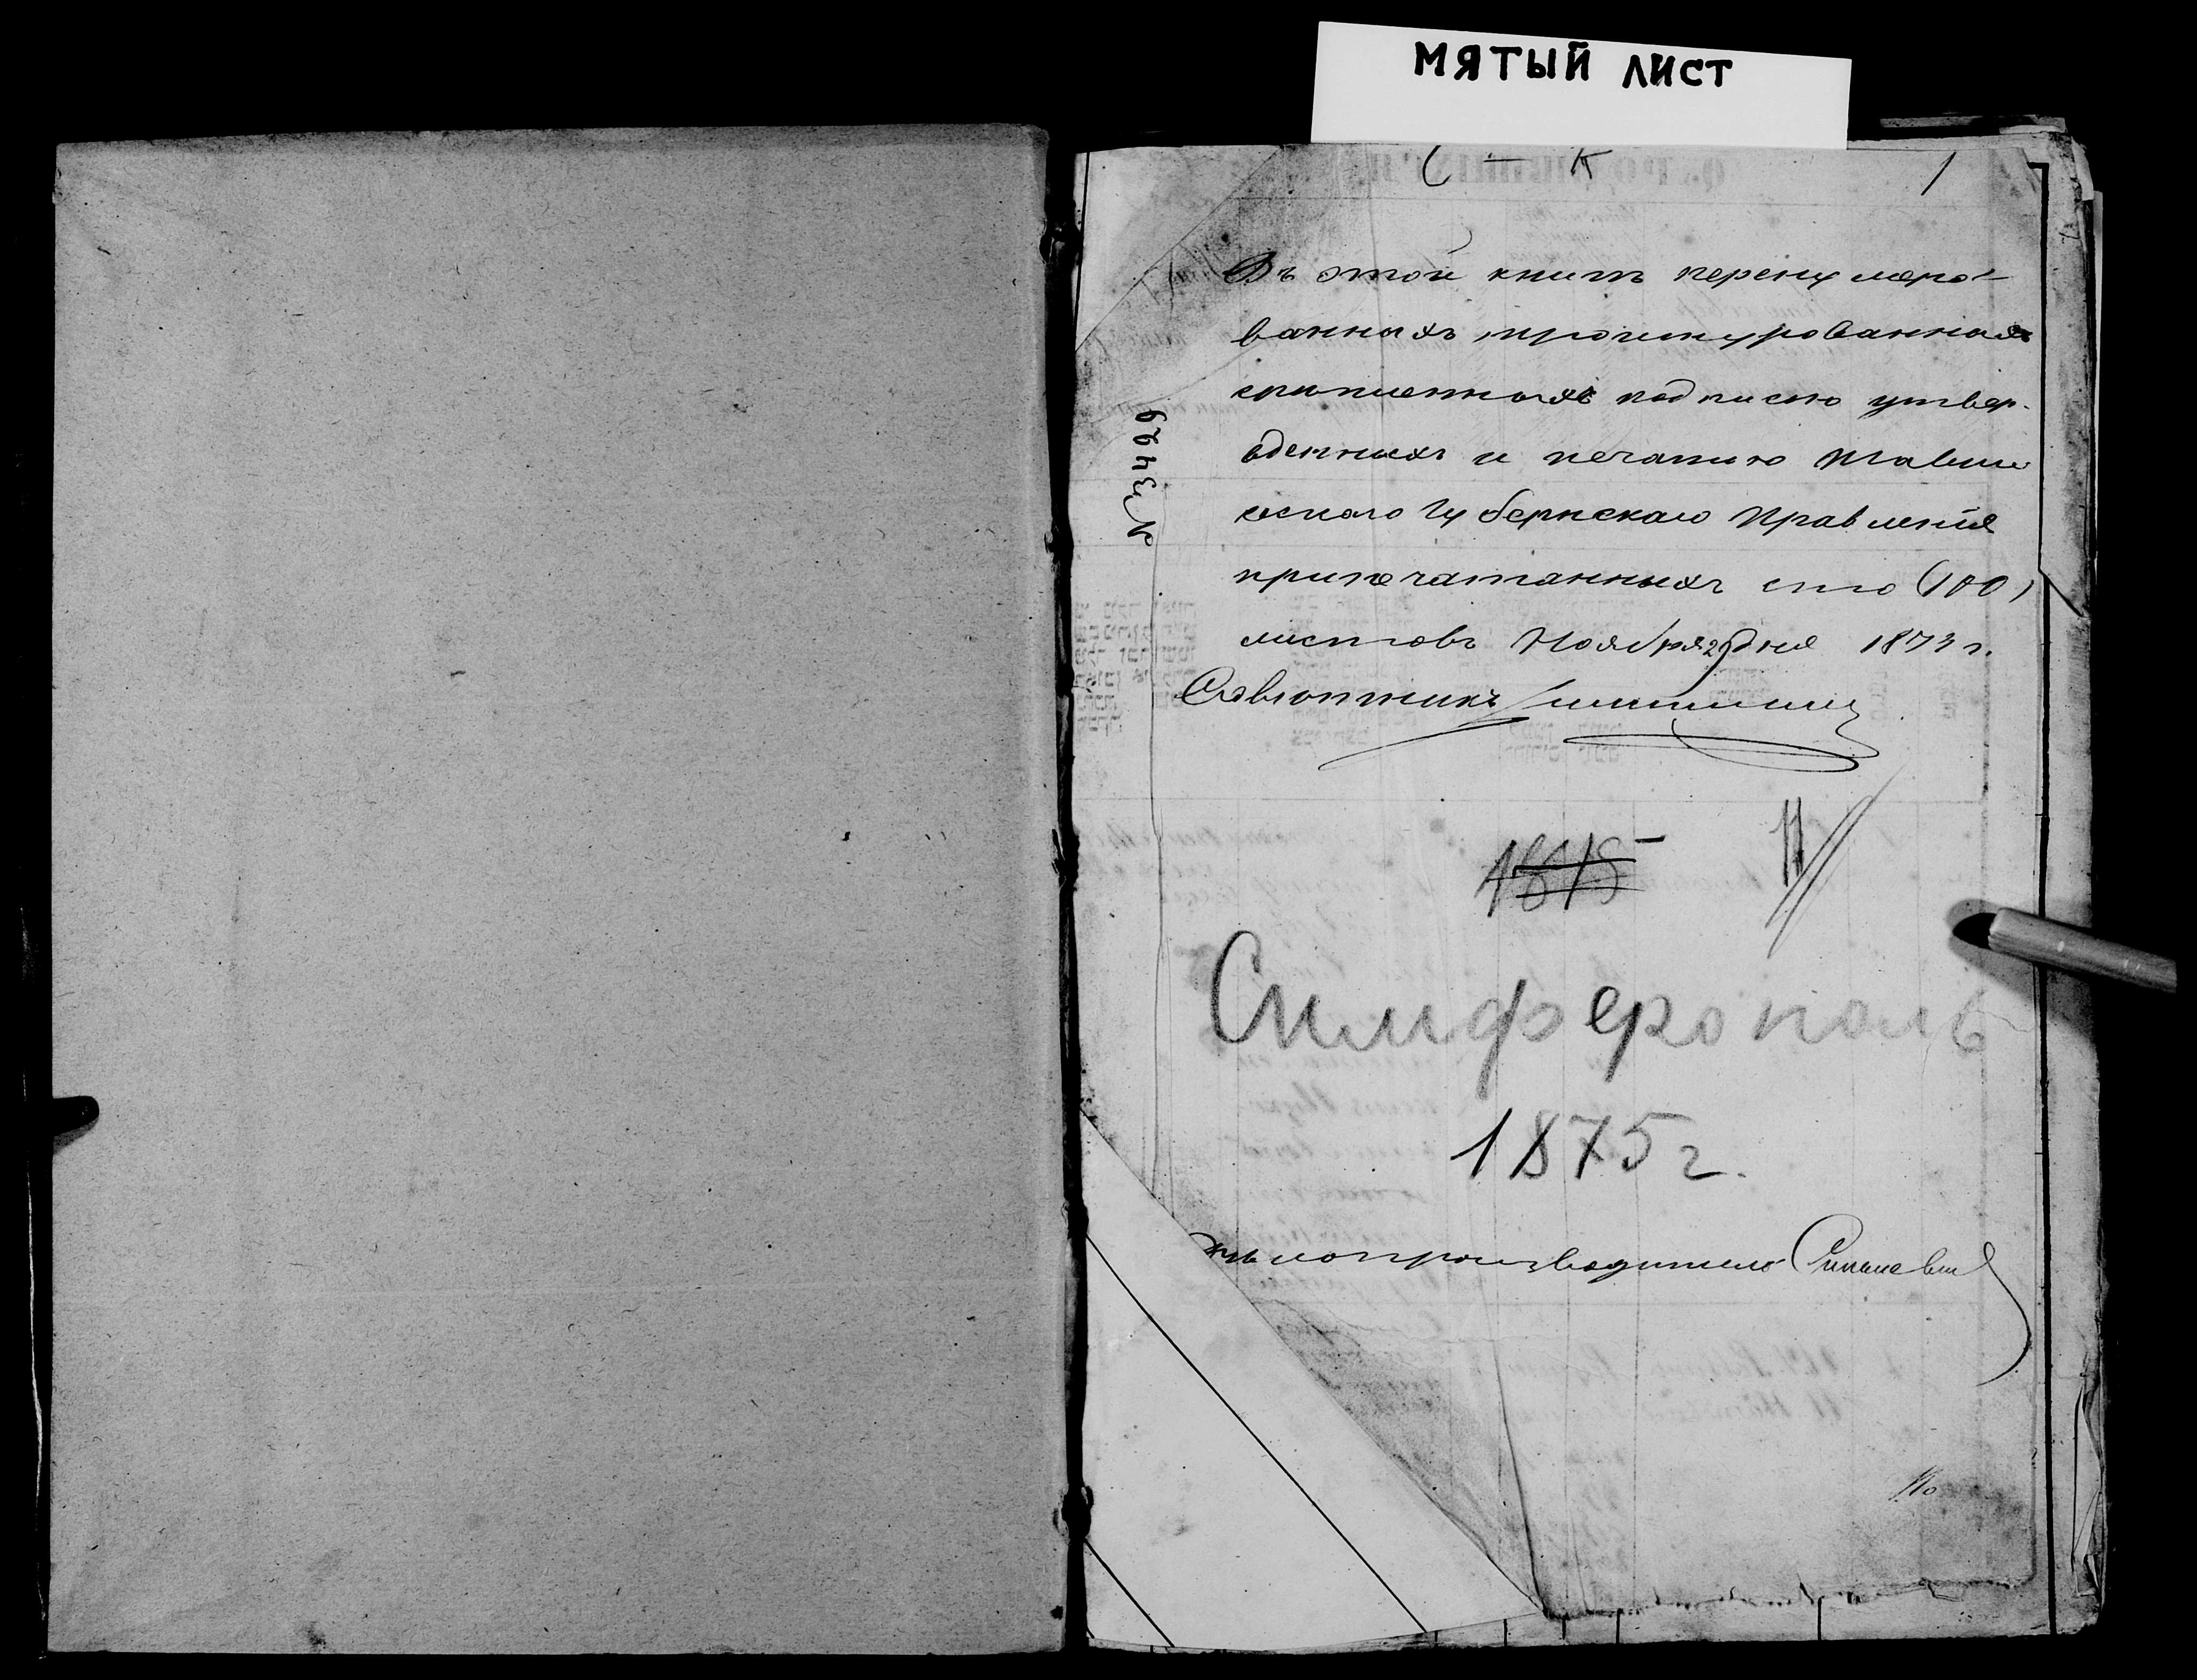 МЯТЫЙ ЛИСТ
С - К
1
Въ этой книгѣ перенумеро-
ванныхъ, прошнурованныхъ
скрѣпленныхъ подписью утвер-
жденныхъ и печатью Таври-
ческаго Губернскаго Правленія
припечатанныхъ сто (100)
листовъ Ноября 29 дня 1874 г.
Совѣтникъ
№ 3499
1875
Симферополь
1875 г.
Дѣлопроизводитель